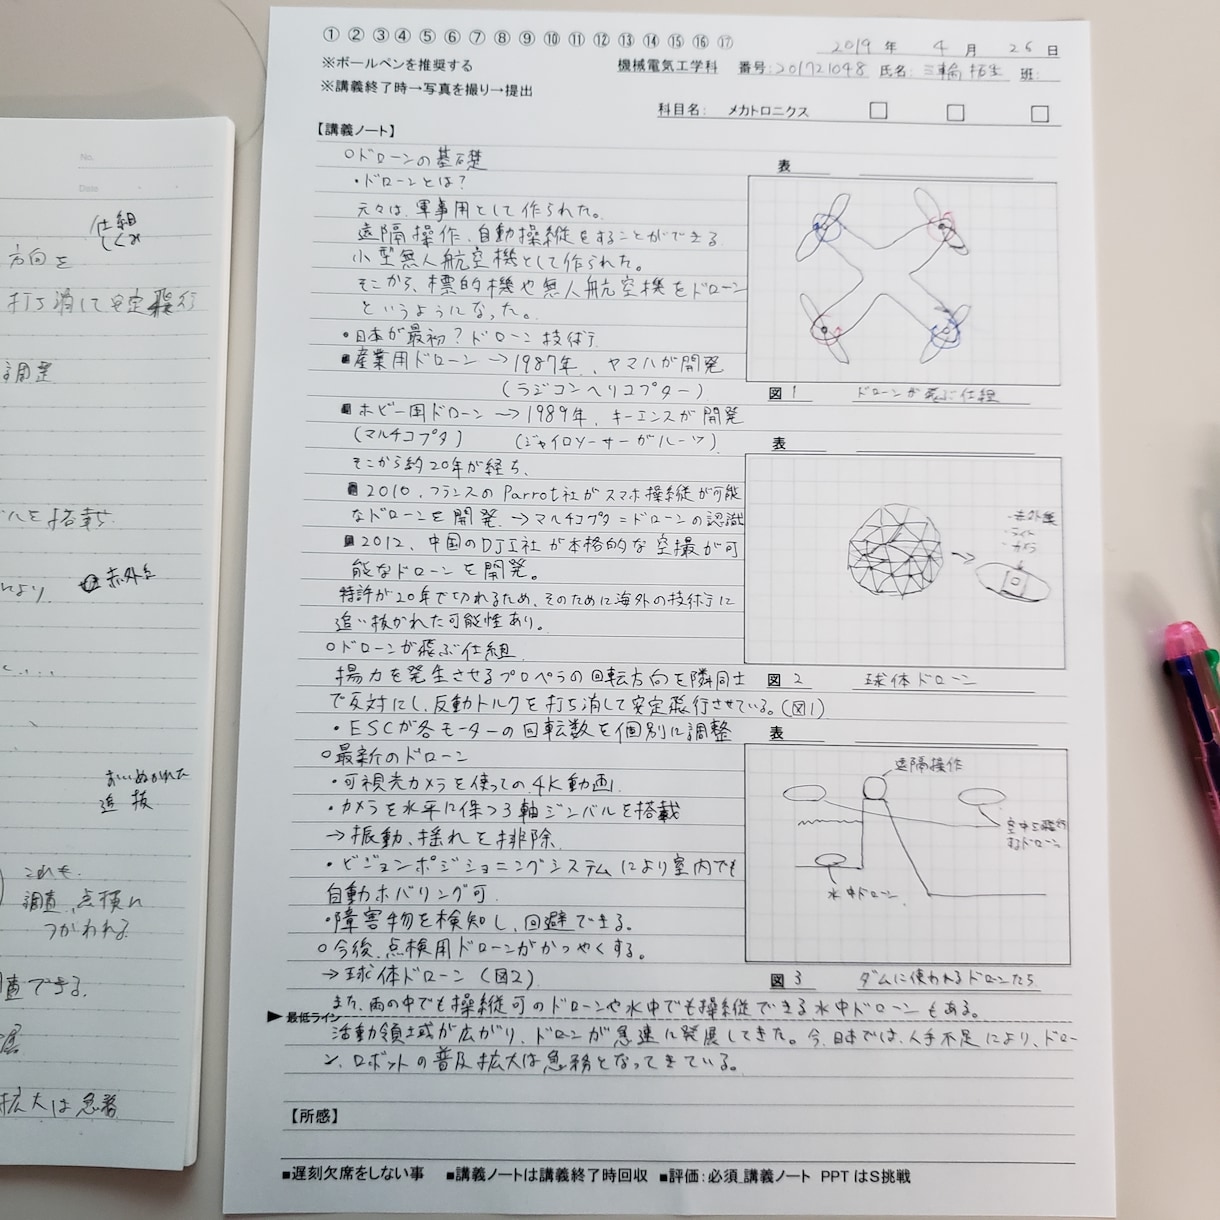 ① ② ③ ④ ⑤ ⑥ ⑦ ⑧ ⑨ ⑩ ⑪ ⑫ ⑬ ⑭ ⑮ ⑯ ⑰
2019 年 4 月 26 日
※ボールペンを推奨する
機械電気工学科 番号:201721048 氏名: 三輪 拓生 班:
※講義終了時→写真を撮り→提出
科目名: メカトロニクス
【講義ノート】
○ドローンの基礎
・ドローンとは?
元々は、軍事用として作られた。
遠隔操作、自動操縦をすることができる
小型無人航空機として作られた。
そこから、標的機や無人航空機をドローン
というようになった。
・日本が最初?ドローン技術
■産業用ドローン→1987年、ヤマハが開発
(ラジコンヘリコプター)
■ホビー用ドローン→1989年、キーエンスが開発
(マルチコプタ) (ジャイロソーサーがルーツ)
そこから約20年が経ち、
■2010、フランスのParrot社がスマホ操縦が可能
なドローンを開発→マルチコプタ=ドローンの認識
■2012、中国のDJI社が本格的な空撮が可
能なドローンを開発。
特許が20年で切れるため、そのために海外の技術に
追い抜かれた可能性あり。
○ドローンが飛ぶ仕組
揚力を発生させるプロペラの回転方向を隣同士
で反対にし、反動トルクを打ち消して安定飛行させている。(図1)
・ESCが各モーターの回転数を個別に調整
○最新のドローン
・可視光カメラを使っての4K動画
・カメラを水平に保つ3軸ジンバルを搭載
→振動、揺れを排除
・ビジョンポジショニングシステムにより室内でも
自動ホバリング可
・障害物を検知し、回避できる。
○今後、点検用ドローンがかつやくする。
→球体ドローン(図2)
また、雨の中でも操縦可のドローンや水中でも操縦できる水中ドローンもある。
▶最低ライン
活動領土域が広がり、ドローンが急速に発展してきた。今、日本では、人手不足により、ドロー
ン、ロボットの普及拡大は急務となってきている。
【所感】
■遅刻欠席をしない事 ■講義ノートは講義終了時回収 ■評価:必須_講義ノート PPTはS挑戦
表
図1 ドローンが飛ぶ仕組
表
・赤外線
・ライト
・カメラ
図2 球体ドローン
表
遠隔操作
空中を飛行
するドローン
水中ドローン
図3 ダムに使われるドローンたち
No.
Date
仕組
しくみ
方向を
打ち消して安定飛行
調整
を搭載
より
赤外
おいぬかれた
追 抜
これも
調査、点検に
つかわれる
できる。
拡大は急務